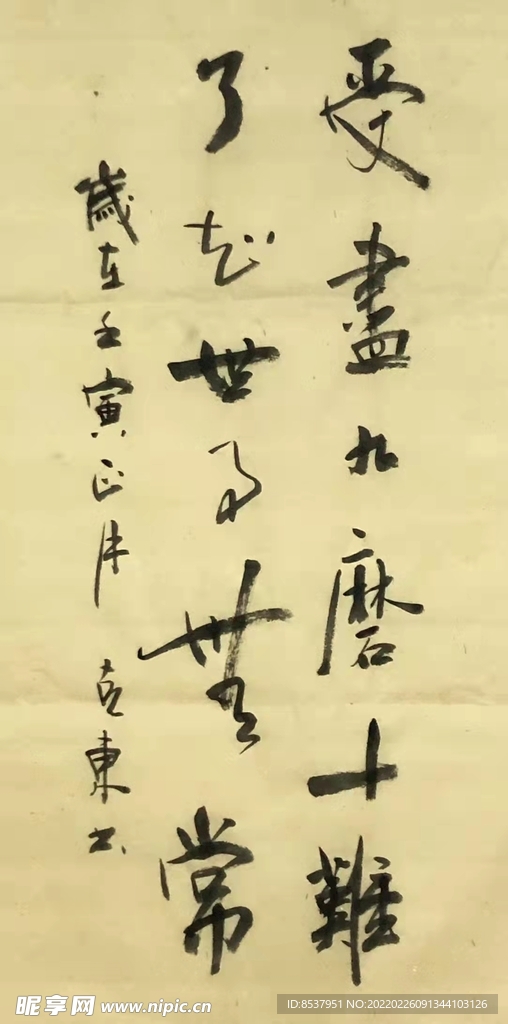 受盡九磨十難
了世事無常
歲在壬寅正月 克東书
昵享网 www.nipic.cn
ID:8537951 NO:20220226091344103126